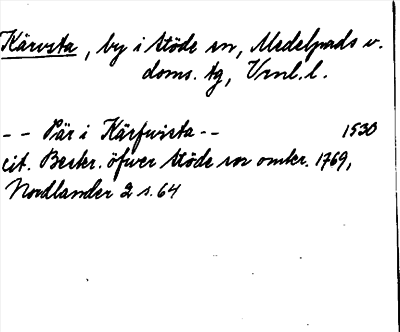 Kärvsta, by i Stöde sn, Medelpads v.
doms. tg, Vnrl. l.
-- Pär i Kärfwista -- 1530
cit. Beskr. öfwer Stöde sn omkr. 1769,
Nordlander 2 s. 64